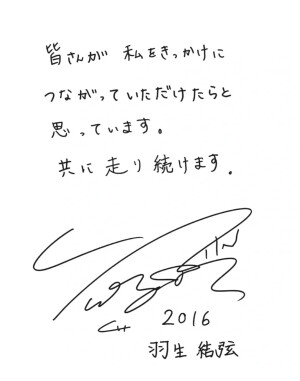 皆さんが 私をきっかけに
つながっていただけたらと
思っています。
共に走り続けます.
2016
羽生結弦